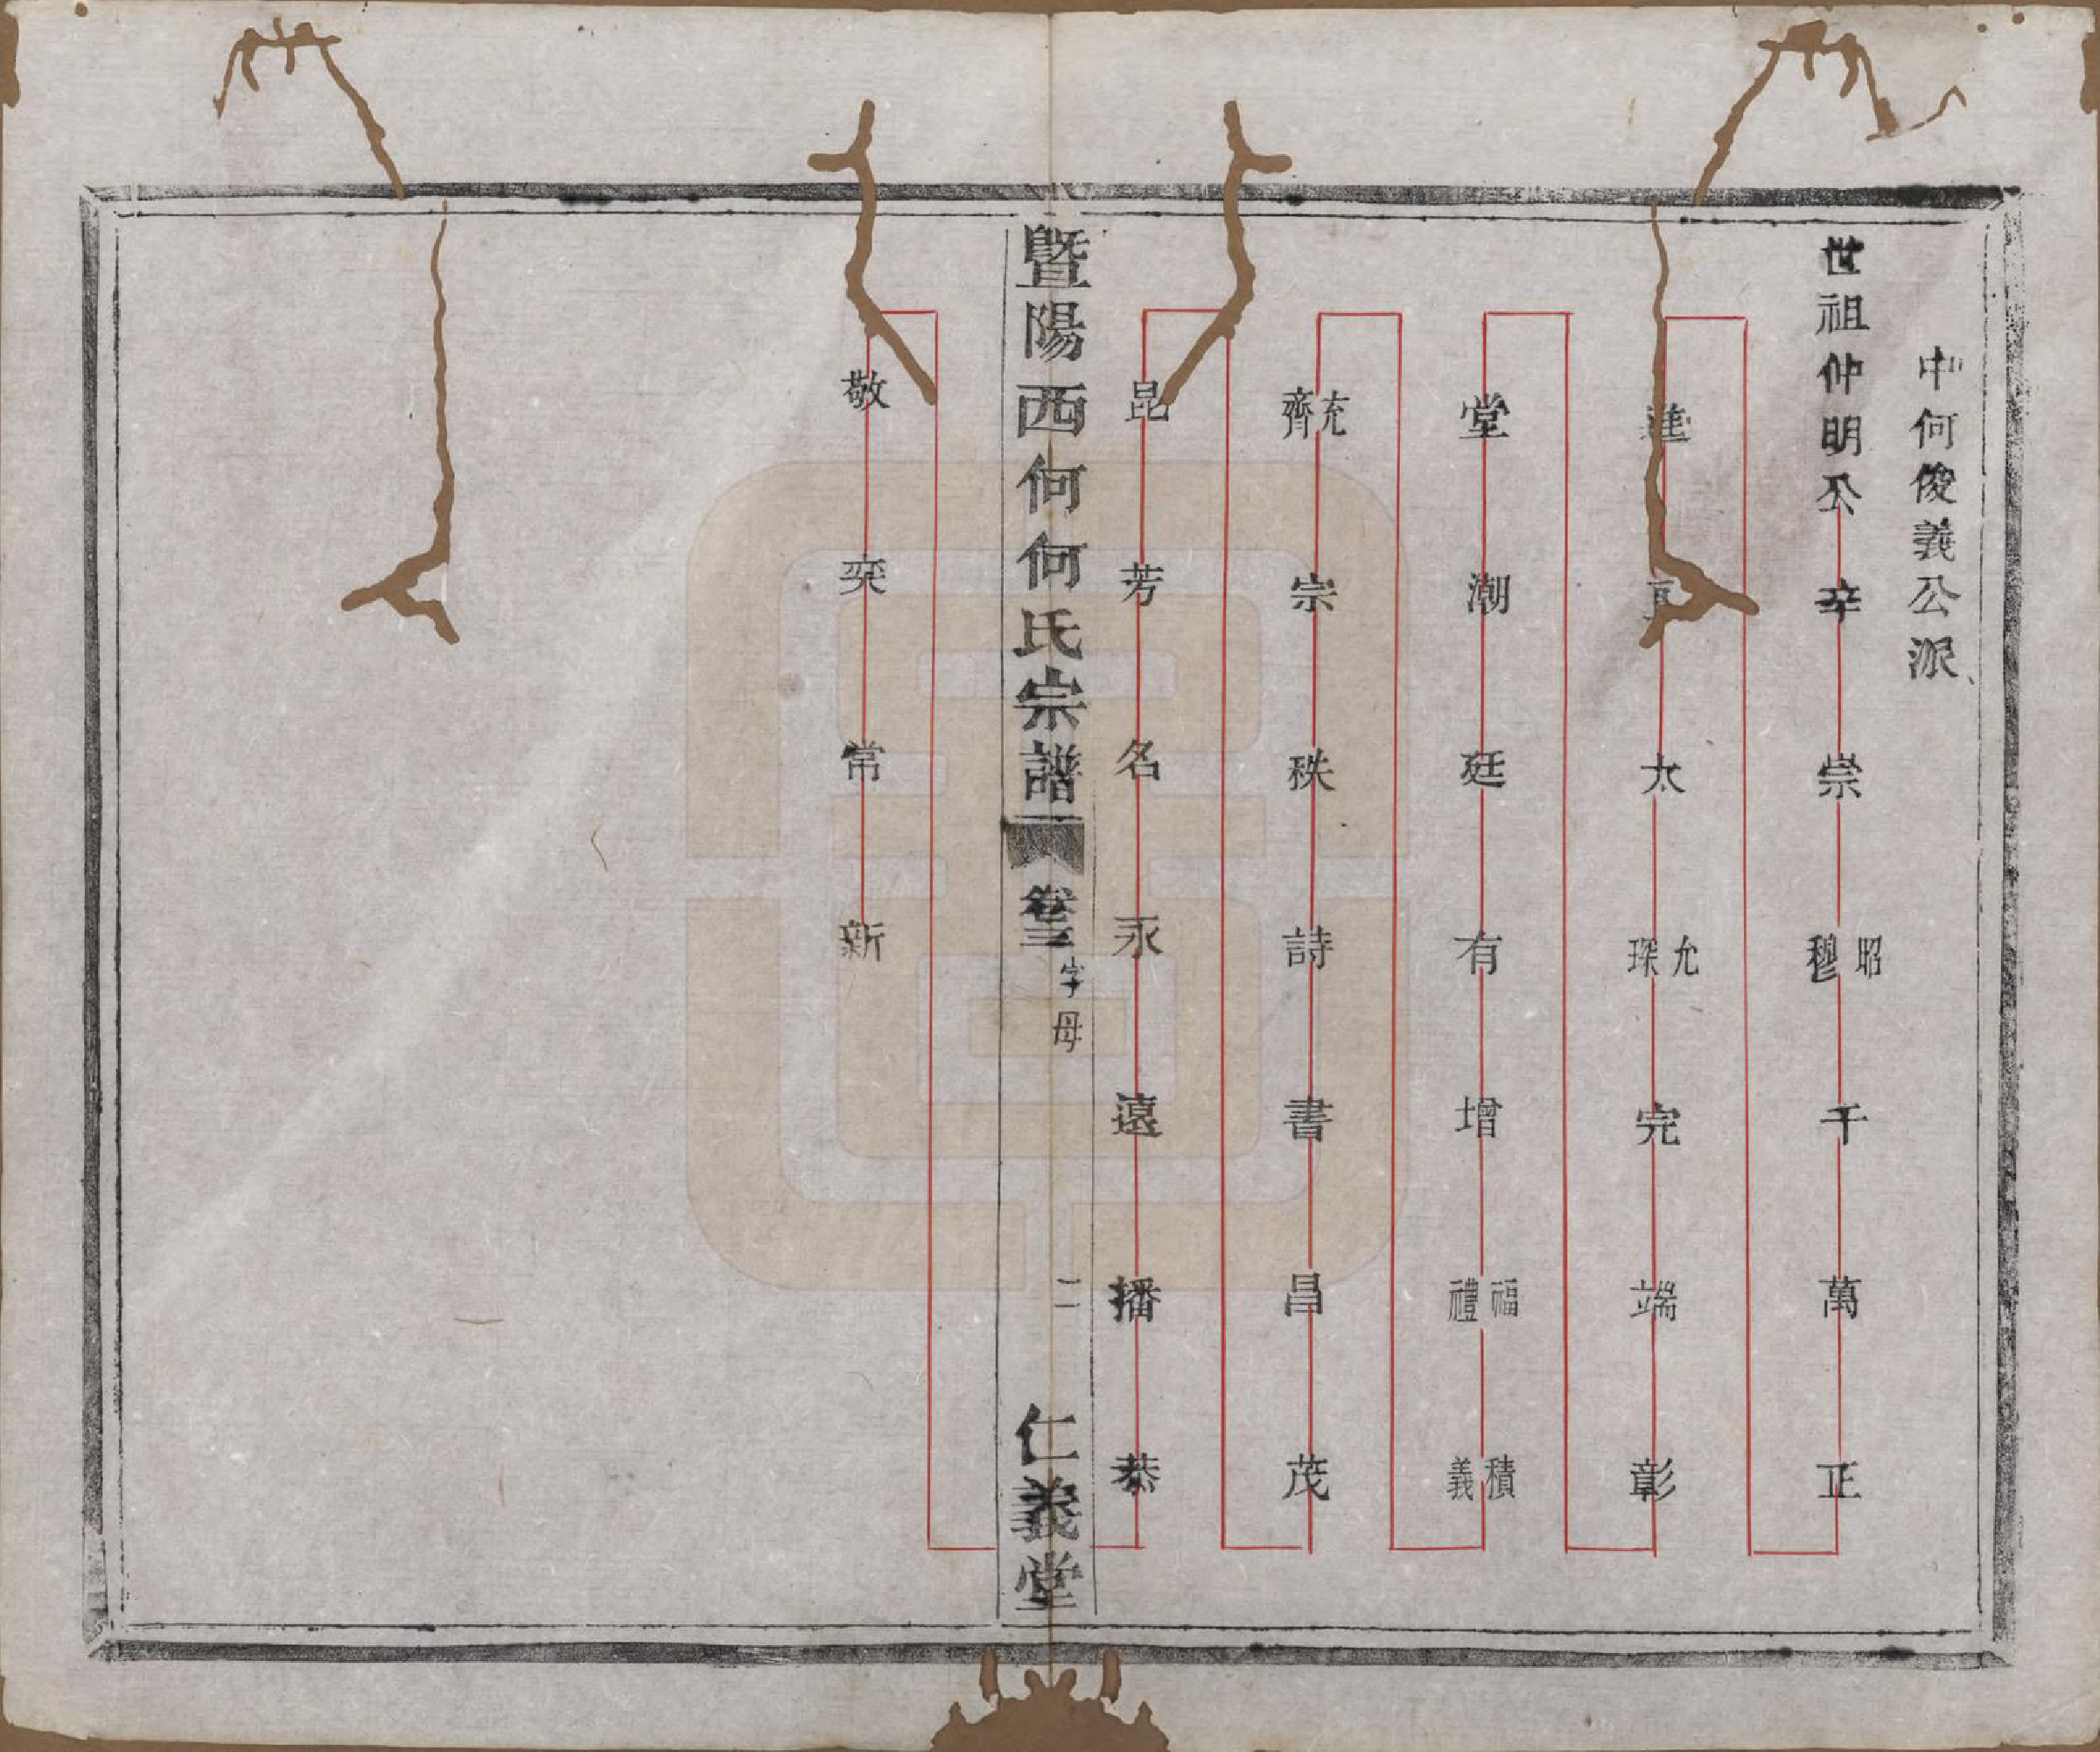 中何俊義公派
世祖仲明公 辛 崇 昭穆 千 萬 正
太 允琛 完 端 彰
堂 潮 廷 有 增 福禮 積義
充齊 宗 秩 詩 書 昌 茂
昆 芳 名 永 遠 播 恭
暨陽西何何氏宗譜 卷三 字母 二 仁義堂
敬 奕 常 新